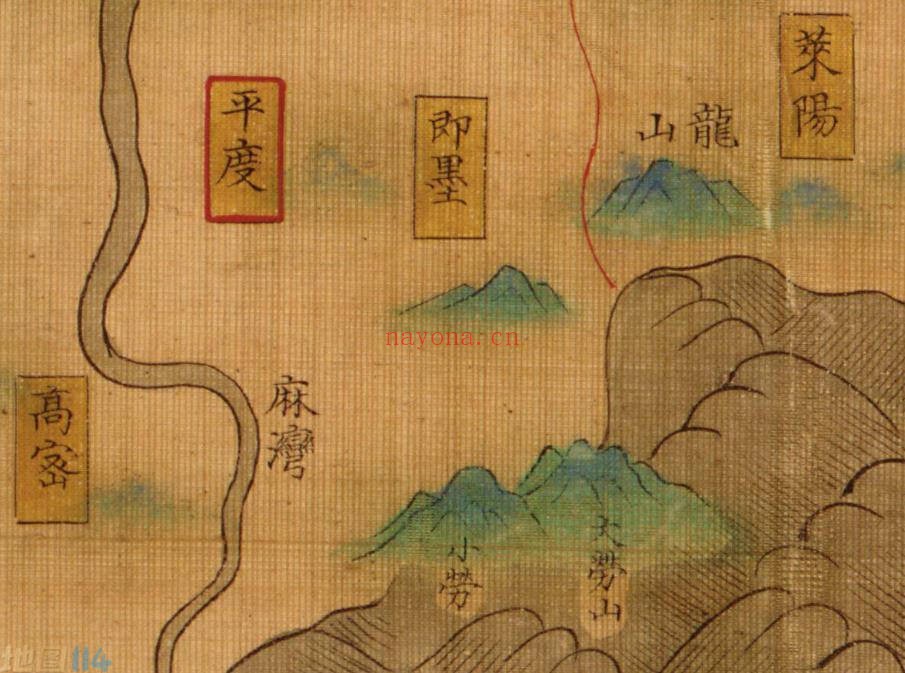 萊陽
龍山
即墨
平度
nayona.cn
麻灣
高密
大勞山
小勞
地图 114